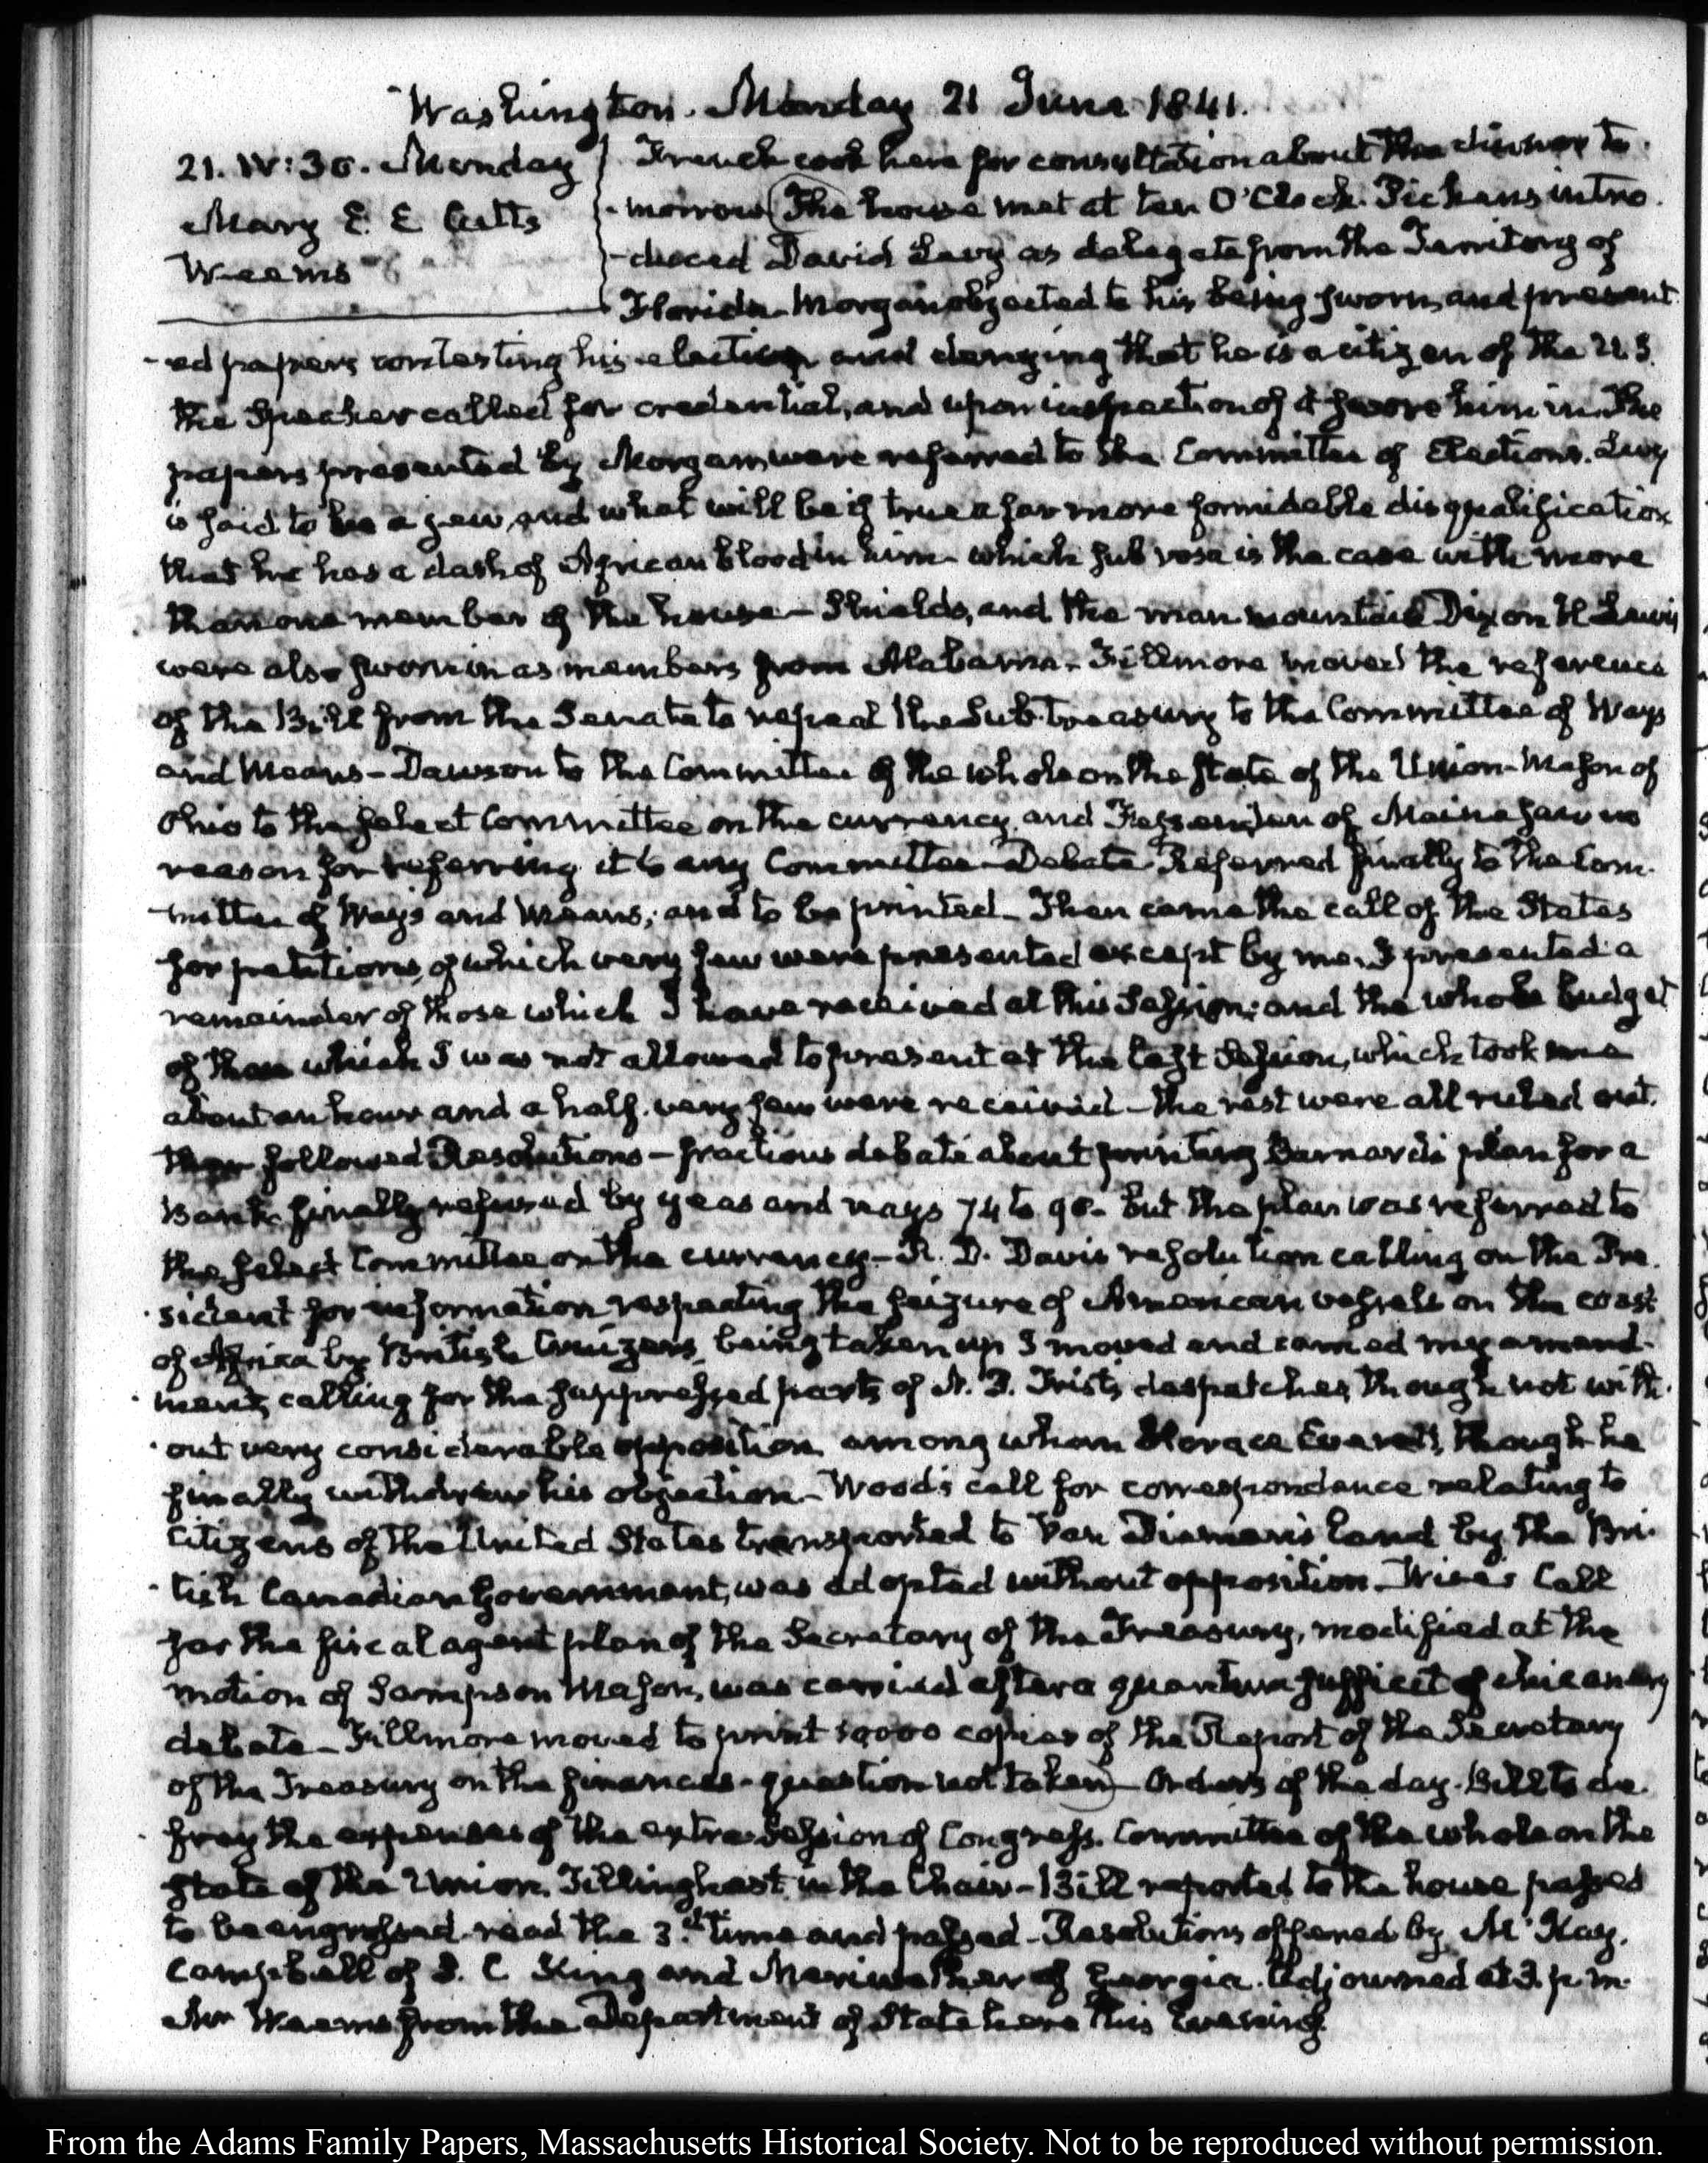 Washington. Monday 21 June 1841.
21. IV:30. Monday
Mary E. E Cutts
Weems
French cook here for consultation about the dinner to
-morrow The house met at ten O'Clock. Pickens intro
-duced David Levy as delegate from the Territory of
Florida. Morgan objected to his being sworn, and present
-ed papers contesting his election and denying that he is a citizen of the U.S.
the Speaker called for credential, and upon inspection of it swore him in. The
papers presented by Morgan were referred to the Committee of Elections. Levy
is said to be a jew, and what will be if true a far more formidable disqualification
that he has a dash of African blood in him which sub rosa is the case with more
than one member of the house — Shields, and the man mountain Dixon H Lewis
were also sworn in as members from Alabama. Fillmore moved the reference
of the Bill from the Senate to repeal the Sub-treasury to the Committee of Ways
and Means — Dawson to the Committee of the whole on the state of the Union — Mason of
Ohio to the select Committee on the currency, and Fessenden of Maine saw no
reason for referring it to any Committee — Debate. Referred finally to the Com
-mittee of Ways and Means; and to be printed. Then came the call of the States
for petitions, of which very few were presented except by me. I presented a
remainder of those which I have received at this Session; and the whole budget
of them which I was not allowed to present at the last Session, which took me
about an hour and a half. very few were received — the rest were all ruled out.
then followed Resolutions — fractious debate about printing Barnard's plan for a
Bank. finally refused by yeas and nays 74 to 98. but the plan was referred to
the select Committee on the currency — R. D. Davis resolution calling on the Pre
-sident for information respecting the seizure of American vessels on the coast
of Africa by British Cruizers, being taken up I moved and carried my amend
-ment, calling for the suppressed parts of N. P. Trist's despatches, though not with
-out very considerable opposition among whom Horace Everett, though he
finally withdrew his objection — Wood's call for correspondence relating to
Citizens of the United States transported to Van Diemen's land by the Bri
-tish Canadian Government, was adopted without opposition. Wise's Call
for the fiscal agent plan of the Secretary of the Treasury, modified at the
motion of Sampson Mason, was carried after a quantum sufficit of chicanery
debate — Fillmore moved to print 10000 copies of the Report of the Secretary
of the Treasury on the finances — question not taken — Orders of the day. Bill to de
-fray the expenses of the extra Session of Congress. Committee of the whole on the
state of the Union. Tillinghast in the Chair — Bill reported to the house passed
to be engrossed read the 3.d time and passed — Resolutions offered by McKay.
Campbell of S. C King and Meriwether of Georgia. Adjourned at 3. p.m.
Mr Weems from the Department of State here this Evening.
From the Adams Family Papers, Massachusetts Historical Society. Not to be reproduced without permission.